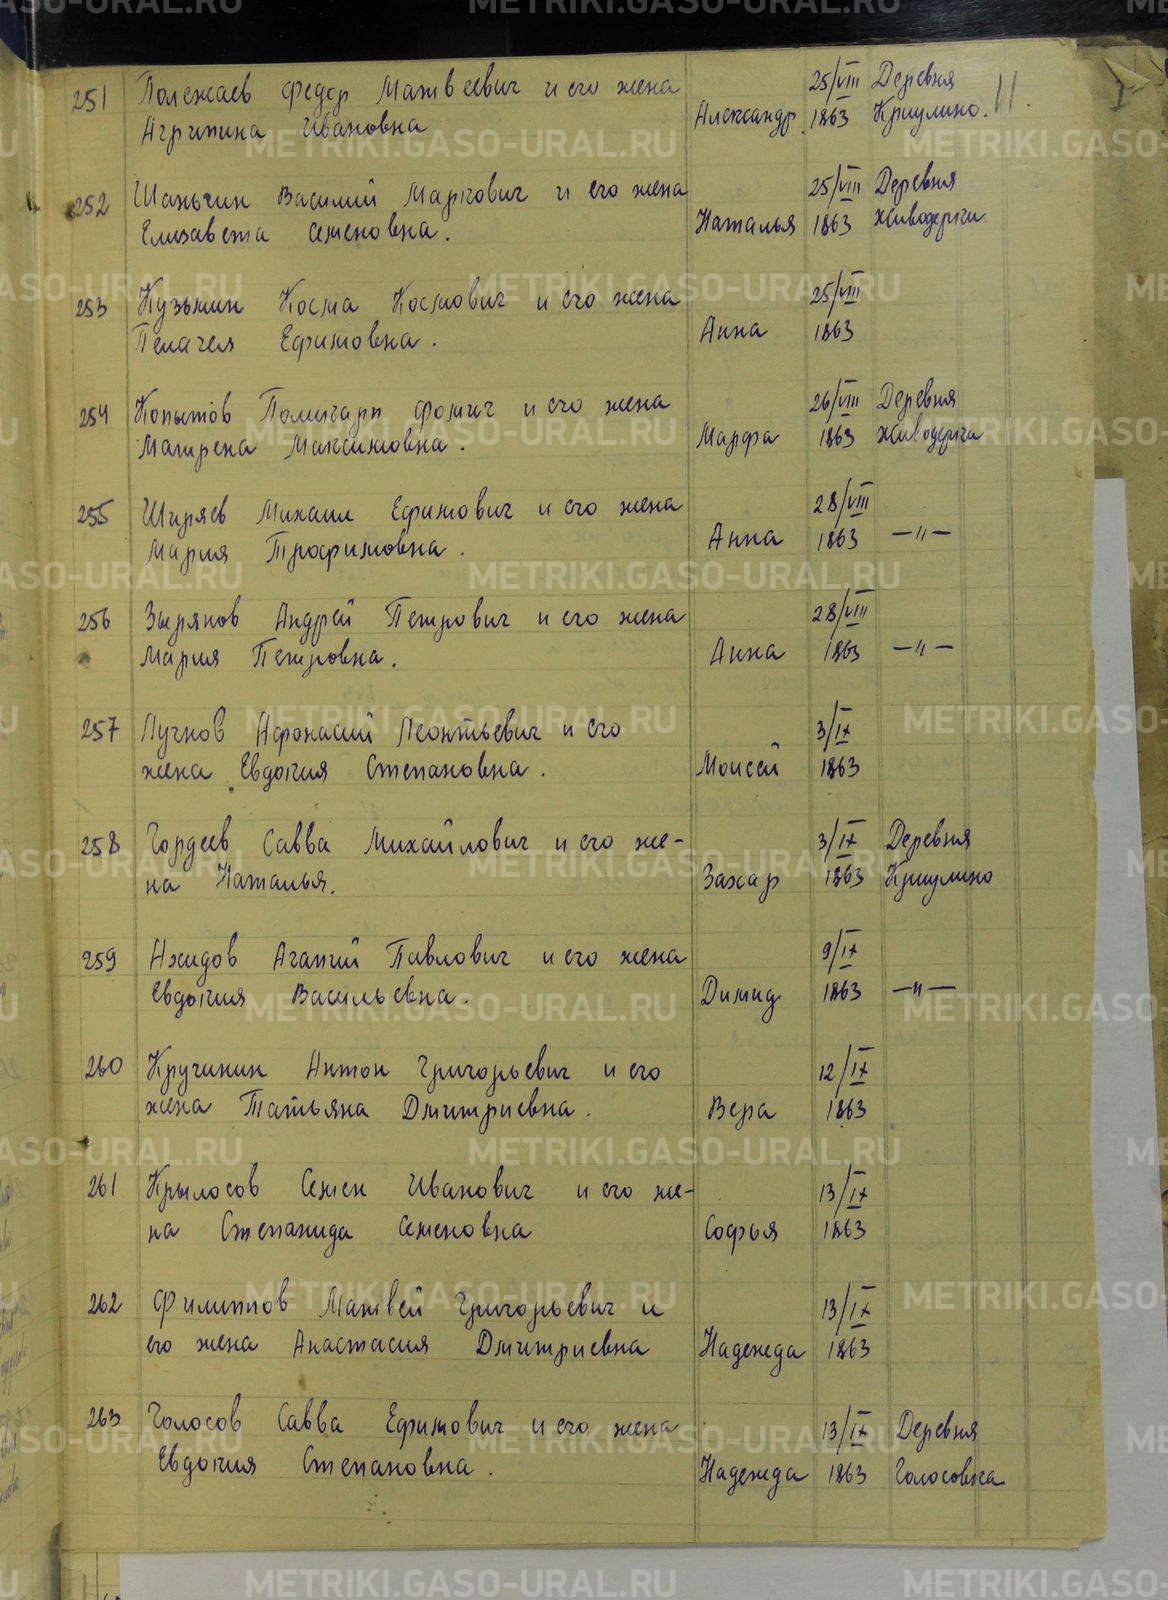 251 Полежаев Федор Матвеевич и его жена
Агрипина Ивановна Александр 25/VIII 1863 Деревня Криулино. 11.
252 Шаньгин Василий Маркович и его жена
Елизавета Семеновна. Наталья 25/VIII 1863 Деревня Живодерги
253 Кузьмин Косма Космович и его жена
Пелагея Ефимовна. Анна 25/VIII 1863
254 Копытов Поликарп Фомич и его жена
Матрена Максимовна. Марфа 26/VIII 1863 Деревня Живодерги
255 Ширяев Михаил Ефимович и его жена
Мария Трофимовна. Анна 28/VIII 1863 —"—
256 Зырянов Андрей Петрович и его жена
Мария Петровна. Анна 28/VIII 1863 —"—
257 Лучков Афонасий Леонтьевич и его
жена Евдокия Степановна. Моисей 3/IX 1863
258 Гордеев Савва Михайлович и его же-
на Наталья. Захар 3/IX 1863 Деревня Криулино
259 Ажидов Агапий Павлович и его жена
Евдокия Васильевна. Димид 9/IX 1863 —"—
260 Кручинин Антон Григорьевич и его
жена Татьяна Дмитриевна. Вера 12/IX 1863
261 Крылосов Семен Иванович и его же-
на Степанида Семеновна Софья 13/IX 1863
262 Филиппов Матвей Григорьевич и
его жена Анастасия Дмитриевна Надежда 13/IX 1863
263 Голосов Савва Ефимович и его жена
Евдокия Степановна. Надежда 13/IX 1863 Деревня Голосовка
METRIKI.GASO-URAL.RU